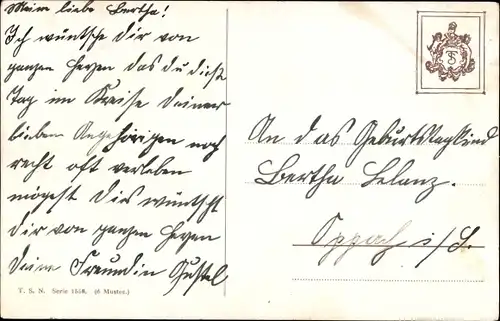 Meine liebe Bertha!
Ich wünsche dir von
ganzen Herzen das du diese
Tag im Kreise deiner
lieben Angehörigen noch
recht oft verleben
mögest dies wünscht
dir von ganzen Herzen
deine Freundin Gustel
T. S. N. Serie 1558. (6 Muster.)
TS
An das Geburtstagskind
Bertha
Oppach i/S.